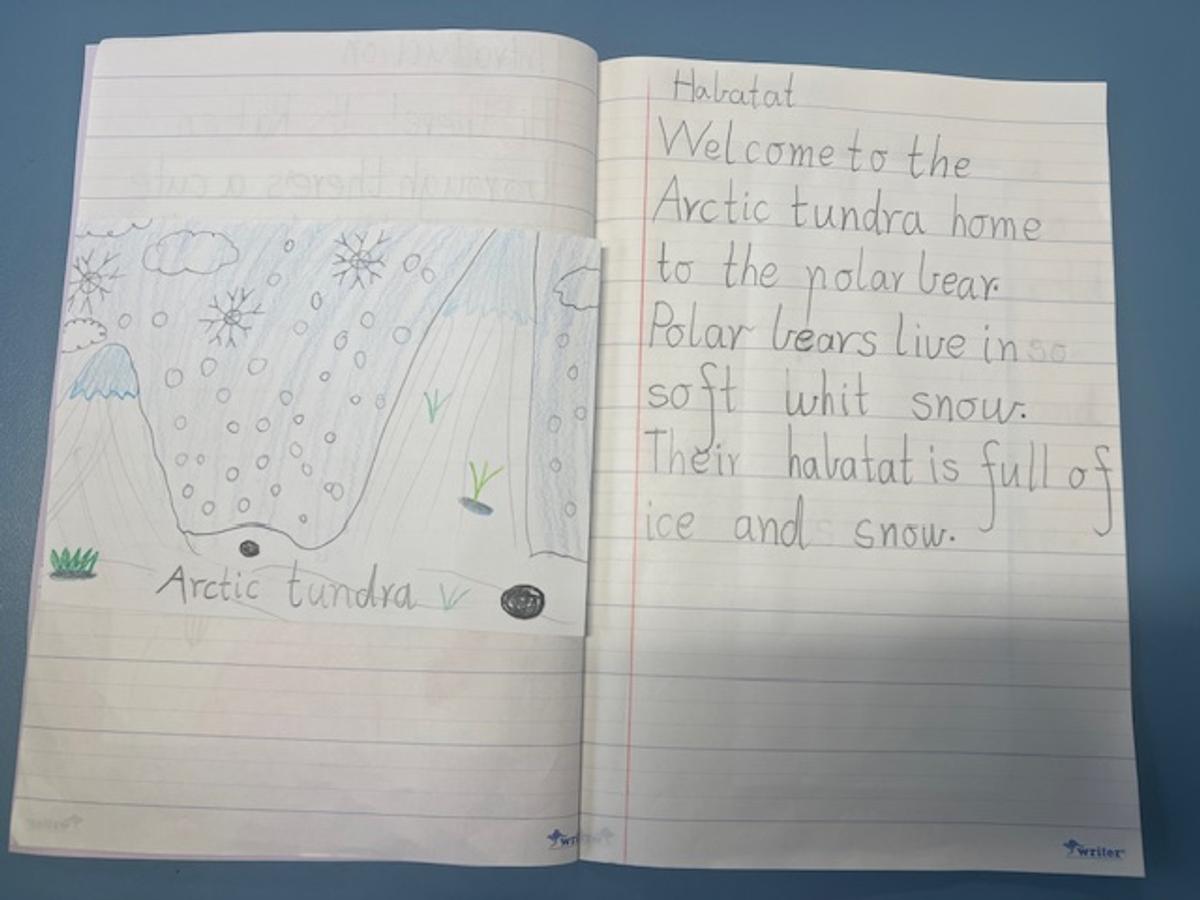 Arctic tundra
Habatat
Welcome to the
Arctic tundra home
to the polar bear.
Polar bears live in so
soft whit snow.
Their habatat is full of
ice and snow.
writer